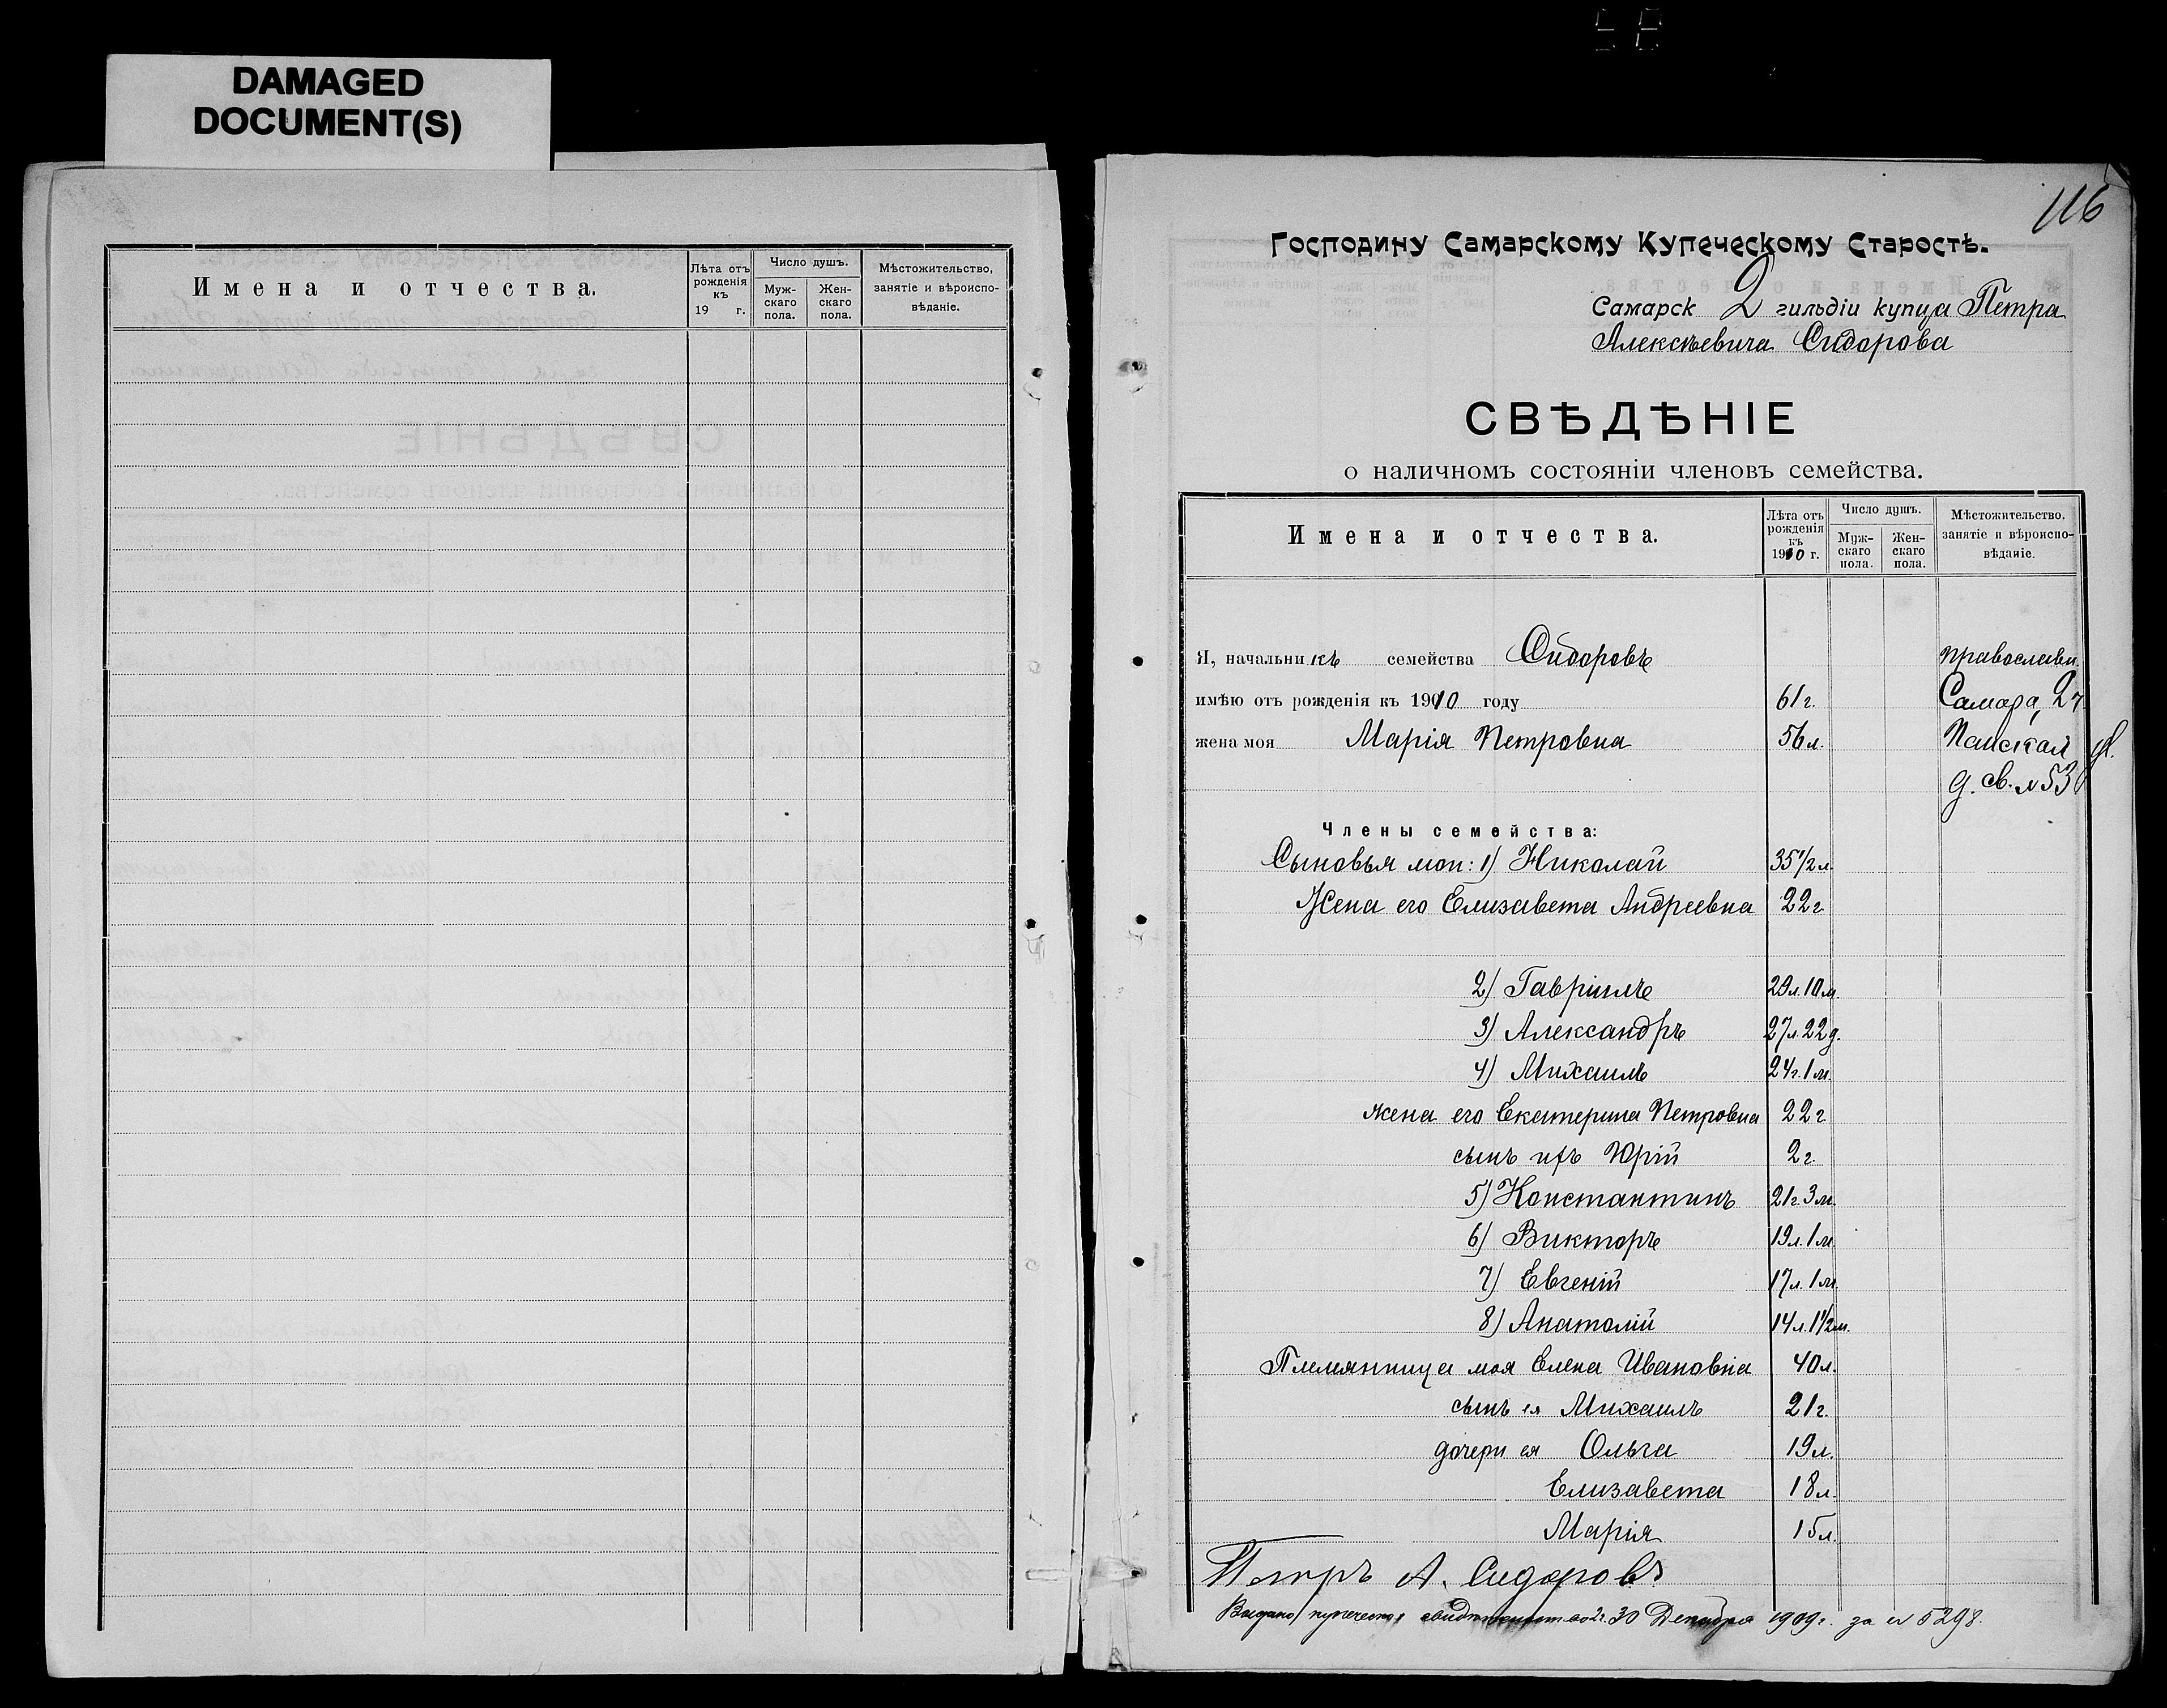 DAMAGED
DOCUMENT(S)
Имена и отчества.
Лѣта отъ рожденія къ 19 г.
Число душъ.
Муж-скаго пола.
Жен-скаго пола.
Мѣстожительство, занятіе и вѣроиспо-вѣданіе.
116
Господину Самарскому Купеческому Старостѣ.
Самарск 2 гильдіи купца Петра
Алексѣевича Сидорова
СВѢДѢНІЕ
о наличномъ состояніи членовъ семейства.
Имена и отчества.
Лѣта отъ рожденія къ 1910 г.
Число душъ.
Муж-скаго пола.
Жен-скаго пола.
Мѣстожительство, занятіе и вѣроиспо-вѣданіе.
Я, начальникъ семейства Сидоровъ православн.
имѣю отъ рожденія къ 1910 году 61 г. Самара, 2ч
жена моя Марія Петровна 56 л. Панская ул.
д. св. № 53
Члены семейства:
Сыновья мои: 1) Николай 35 1/2 л.
Жена его Елизавета Андреевна 22 г
2) Гавріилъ 29 л. 10 м.
3) Александръ 27 л. 22 д.
4) Михаилъ 24 г. 1 м.
жена его Екатерина Петровна 22 г
сынъ ихъ Юрій 2 г.
5) Константинъ 21 г. 3 м.
6) Викторъ 19 л. 1 м.
7) Евгеній 17 л. 1 м.
8) Анатолій 14 л. 1 1/2 м.
Племянница моя Елена Ивановна 40 л.
сынъ ея Михаилъ 21 г.
дочери ея Ольга 19 л.
Елизавета 18 л.
Марія 15 л.
Петръ А. Сидоровъ
Выдано купеческое 2 г. 30 Декабря 1909 г. за № 5298.